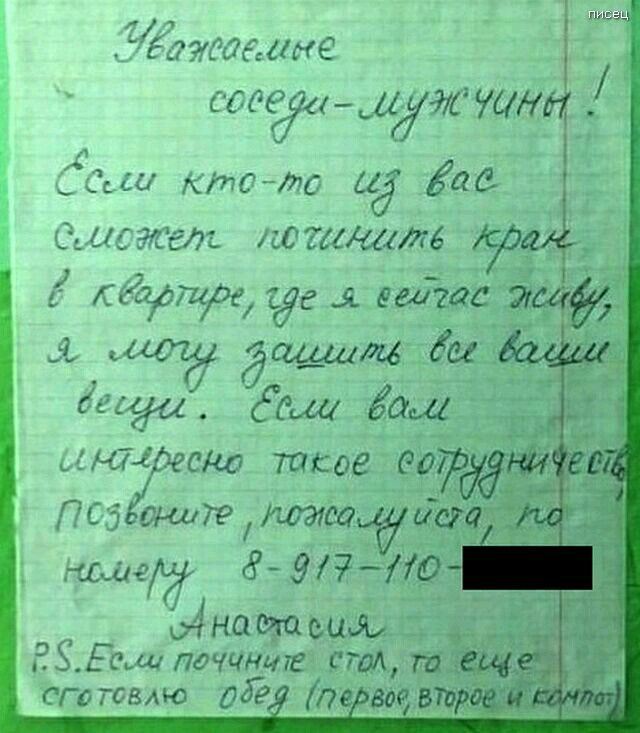 писец
Уважаемые
соседи-мужчины!
Если кто-то из вас
сможет починить кран
в квартире, где я сейчас живу,
я могу зашить все ваши
вещи. Если вам
интересно такое сотрудничество,
позвоните, пожалуйста, по
номеру 8-917-110-
Анастасия
P.S. Если почините стол, то еще
сготовлю обед (первое, второе и компот)